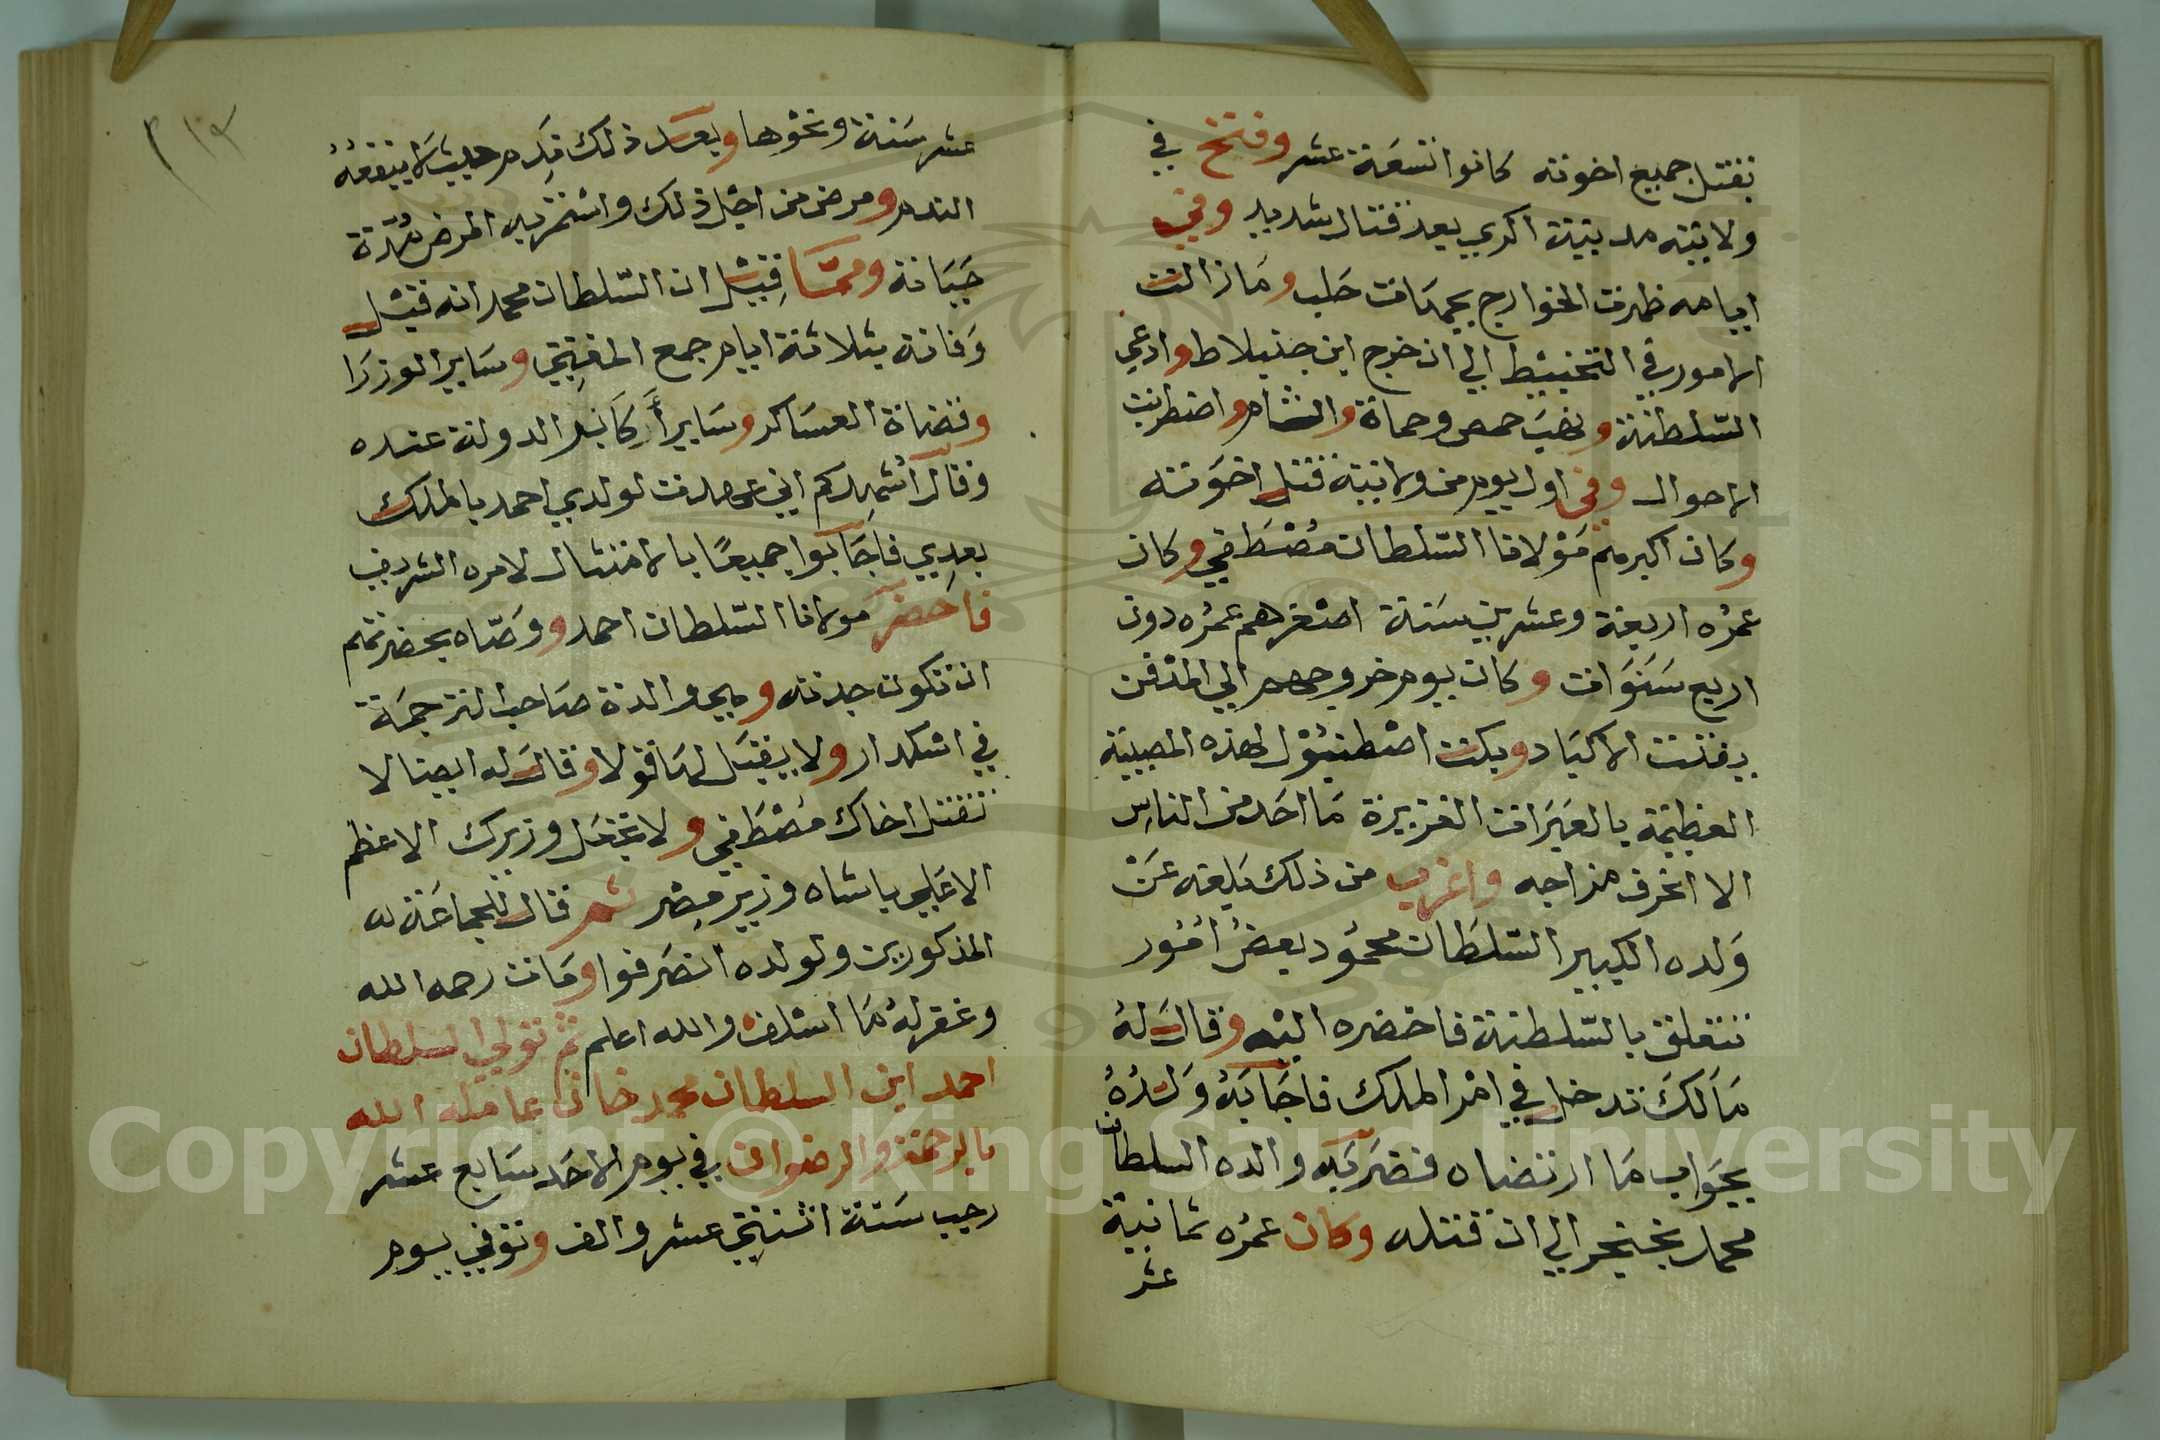 بقتل جميع اخوته كانوا تسعة عشر وفتح في
ولايته مدينة اكري بعد قتال شديد وفي
ايامه ظهرت الخوارج بجهات حلب وما زالت
الامور في التخبيط الي ان خرج ابن جنبلاط وادعي
السلطنة ونهب حمص وحماة والشام واضطربت
الاحوال وفي اول يوم من ولايته قتل اخوته
وكان اكبرهم مولانا السلطان مصطفي وكان
عمره اربعة وعشرين سنة اصغرهم عمره دون
اربع سنوات وكان يوم خروجهم الي المدفن
يفتت الاكباد وبكت اصطنبول لهذه المصيبة
العظيمة بالعبرات الغزيرة ما احد من الناس
الا انحرف مزاجه واغرب من ذلك بلغه عن
ولده الكبير السلطان محمود بعض امور
تتعلق بالسلطنة فاحضره اليه وقال له
مالك تدخل في امر الملك فاجابه ولده
بجواب ما ارتضاه فضربه والده السلطان
محمد بخنجر الي ان قتله وكان عمره ثمانية
عشر
٢١٢
عشر سنة ونحوها وبعد ذلك ندم حيث لا ينفعه
الندم ومرض من اجل ذلك واستمر به المرض مدة
حياته ومما قيل ان السلطان محمد انه قبل
وفاته بثلاثة ايام جمع المفتي وساير الوزرا
وقضاة العساكر وساير اركان الدولة عنده
وقال اشهدكم اني عهدت لولدي احمد بالملك
بعدي فاجابوا جميعا بالامتثال لامره الشريف
فاحضر مولانا السلطان احمد ووصاه بحضرتهم
ان تكون جدته وهي والدة صاحب الترجمة
في اسكدار ولا يقبل لها قولا وقال له ايضا لا
تقتل اخاك مصطفي ولا تجعل وزيرك الاعظم
الا علي باشاه وزير مصر ثم قال للجماعة
المذكورين ولولده انصرفوا ومات رحمه الله
وغفر له ما اسلف والله اعلم ثم تولي السلطان
احمد ابن السلطان محمد خان عامله الله
بالرحمة والرضوان في يوم الاحد سابع عشر
رجب سنة اثنتي عشر والف وتوفي يوم
Copyright © King Saud University